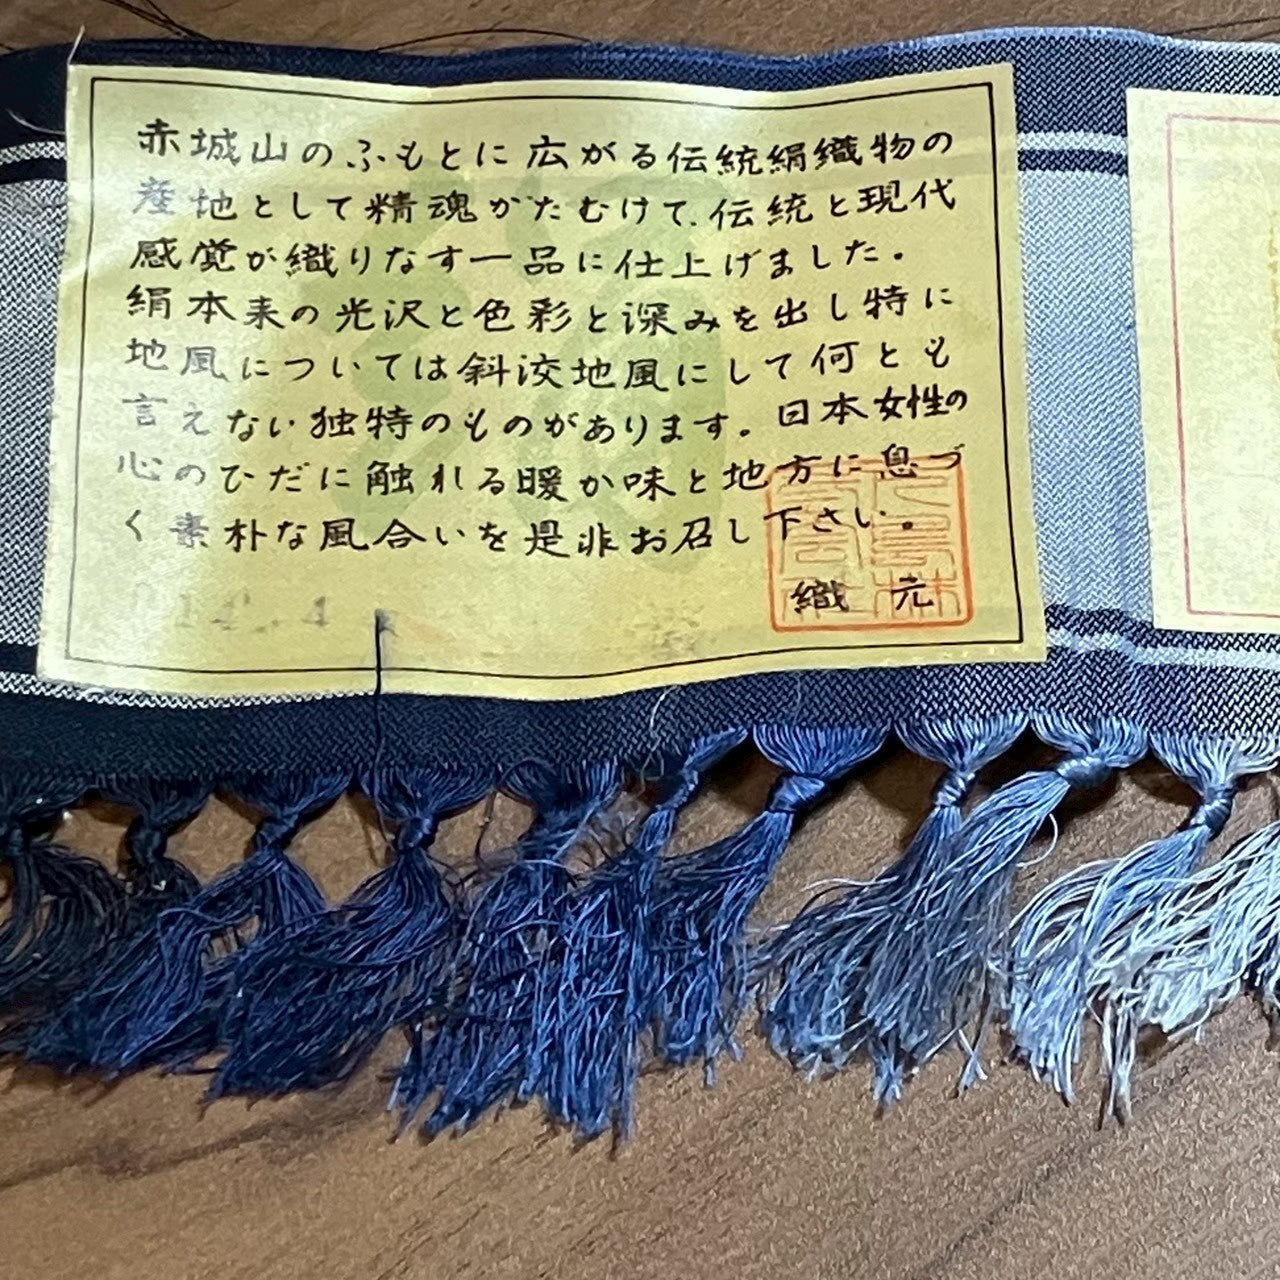 赤城山のふもとに広がる伝統絹織物の
産地として精魂かたむけて、伝統と現代
感覚が織りなす一品に仕上げました。
絹本来の光沢と色彩と深みを出し特に
地風については斜洨地風にして何とも
言えない独特のものがあります。日本女性の
心のひだに触れる暖か味と地方に息づ
く素朴な風合いを是非お召し下さい。
織元